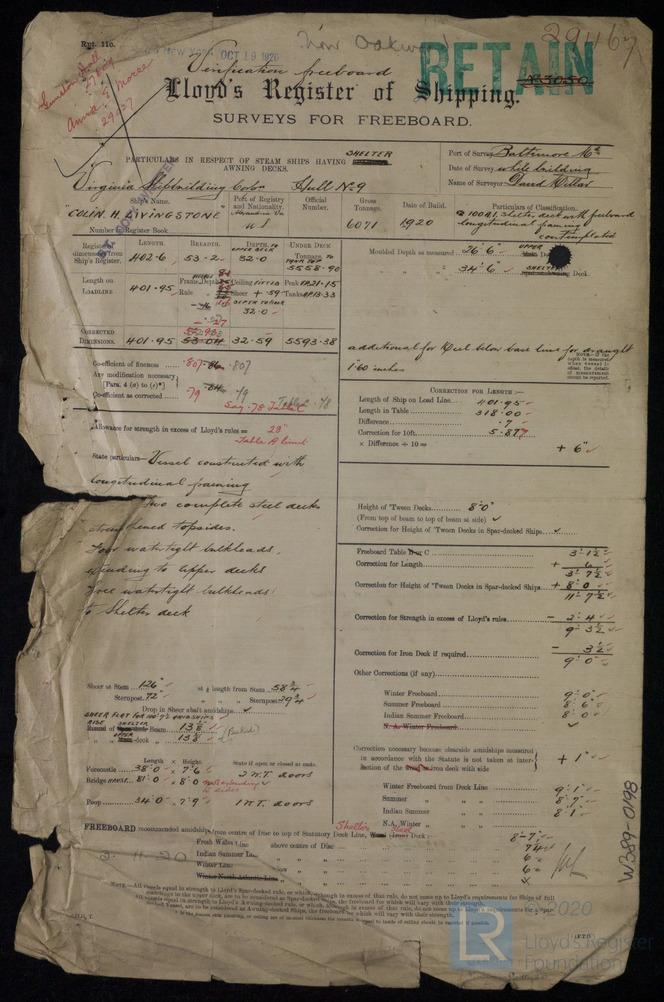 Rpt. 11c.
New York OCT 19 1920
Now Oakwood
29467
RETAIN
Verification freeboard
Lloyd's Register of Shipping.
SURVEYS FOR FREEBOARD.
PARTICULARS IN RESPECT OF STEAM SHIPS HAVING SHELTER
AWNING DECKS.
Port of Survey Baltimore Md
Date of Survey while building
Name of Surveyor David Millar
Virginia Shipbuilding Corpn Hull No 9
Ship's Name.
Port of Registry and Nationality.
Official Number.
Gross Tonnage.
Date of Build.
Particulars of Classification.
"COLIN H. LIVINGSTONE"
Alexandria Va
U S
6071
1920
100A1 shelter deck with freeboard
longitudinal framing
contemplated
Number in Register Book
LENGTH. BREADTH. DEPTH TO UPPER DECK UNDER DECK Tonnage TO TANK TOP
Register dimensions from Ship's Register.
402.6 53.2 32.0 5558.90
Length on LOADLINE 401.95
Frame Depth
Rule
Ceiling FITTED
Sheer + .59
Peak
Tanks
32.0
CORRECTED DIMENSIONS. 401.95 53.04 32.59 5593.38
Moulded Depth as measured 26'6" UPPER
" " " 34'6" SHELTER Deck.
additional for Keel below base line for draught
1.60 inches
NOTE.—If the depth is measured when vessel is afloat, the details of measurement should be reported.
Co-efficient of fineness .807 .86 .807
Any modification necessary
[Para. 4 (a) to (e)*]
Co-efficient as corrected 79 .79
Say .78 Table C .78
Allowance for strength in excess of Lloyd's rules = 28"
Table A limit
State particulars— Vessel constructed with
longitudinal framing
Two complete steel decks
strengthened topsides.
Four watertight bulkheads,
extending to upper decks
Three watertight bulkheads
to Shelter deck
CORRECTION FOR LENGTH :—
Length of Ship on Load Line 401.95
Length in Table 318.00
Difference
Correction for 10ft.
× Difference ÷ 10 = + 6"
Height of 'Tween Decks 8'0"
(From top of beam to top of beam at side)
Correction for Height of 'Tween Decks in Spar-decked Ships
Freeboard Table C 3'1½
Correction for Length + 6
3'7½
Correction for Height of 'Tween Decks in Spar-decked Ships + 8'0
11'7½
Correction for Strength in excess of Lloyd's rules − 2'4
9'3½
Correction for Iron Deck if required − 3½
9'0
Other Corrections (if any)
Winter Freeboard 9'0
Summer Freeboard 8'6
Indian Summer Freeboard 8'0
N. A. Winter Freeboard
Correction necessary because clearside amidships measured
in accordance with the Statute is not taken at inter-
section of the iron deck with side + 1"
Winter Freeboard from Deck Line 9'1
Summer " " " 8'7
Indian Summer " " " 8'1
N.A. Winter " " "
Sheer at Stem 126" at ⅛ length from Stem 58¾
" Sternpost 72" " " " Sternpost 39¾
Drop in Sheer abaft amidships
SHEER FLAT FOR 100'7½ AMIDSHIPS
RISE SHELTER
Round of Beam 13⅝
" UPPER -deck " 13⅝
Length × Height State if open or closed at ends.
Forecastle 38'0 × 7'6 2 W.T. doors
Bridge HOUSE 81'0 × 8'0 not extending to sides
Poop 34'0 × 7'9 1 W.T. doors
FREEBOARD recommended amidships from centre of Disc to top of Statutory Deck Line, Shelter Steel Deck :— 8-7
Fresh Water Line above centre of Disc 7¼
Indian Summer Line " " 6
Winter Line " " 6
Winter North Atlantic Line "
3.11.20
NOTE.—All vessels equal in strength to Lloyd's Spar-decked rule, or which, though in excess of that rule, do not come up to Lloyd's requirements for Ships of full
W389-0198
© 2020
LR
Lloyd's Register
Foundation